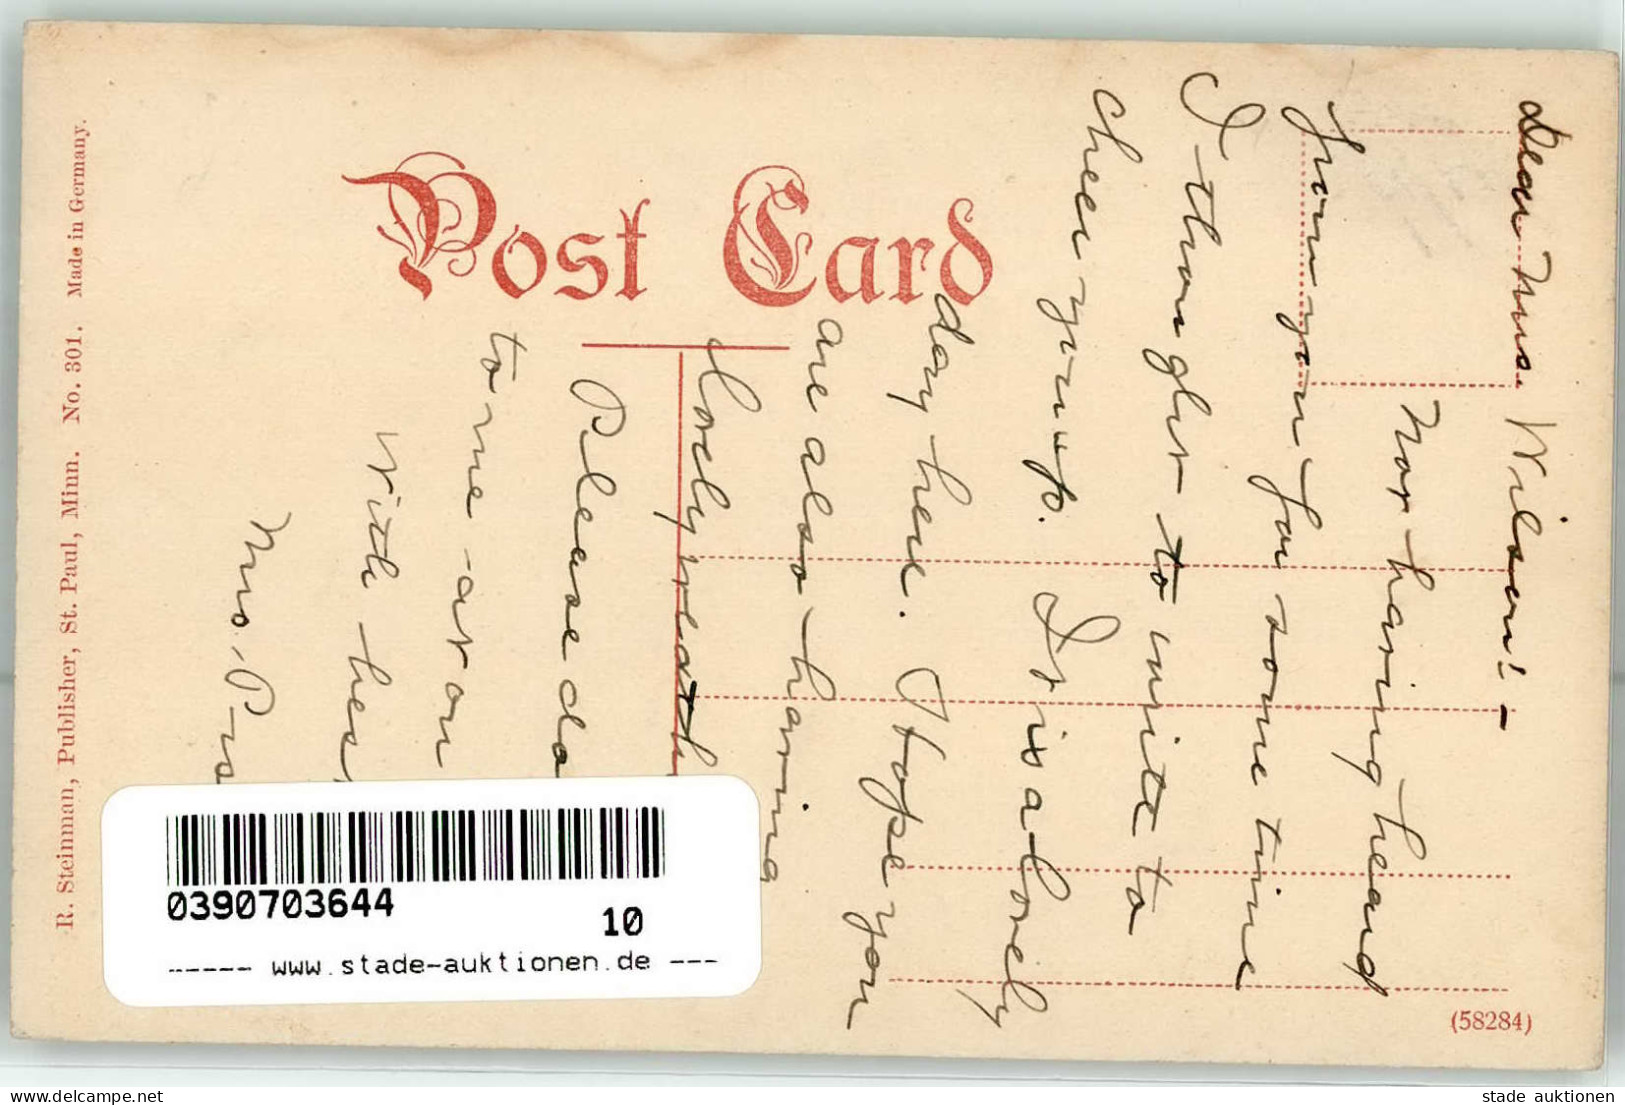 Post Card
R. Steinman, Publisher, St. Paul, Minn. No. 301. Made in Germany.
(58284)
Dear Mrs. Wilson! -
Not having heard
from you for some time
I thought to write to
cheer you up. It is a lovely
day here. I hope you
are also having
lovely weath
Please do
to me
With bes
Mrs. P
0390703644
10
------ www.stade-auktionen.de ---
oldthing.com
stade auktionen